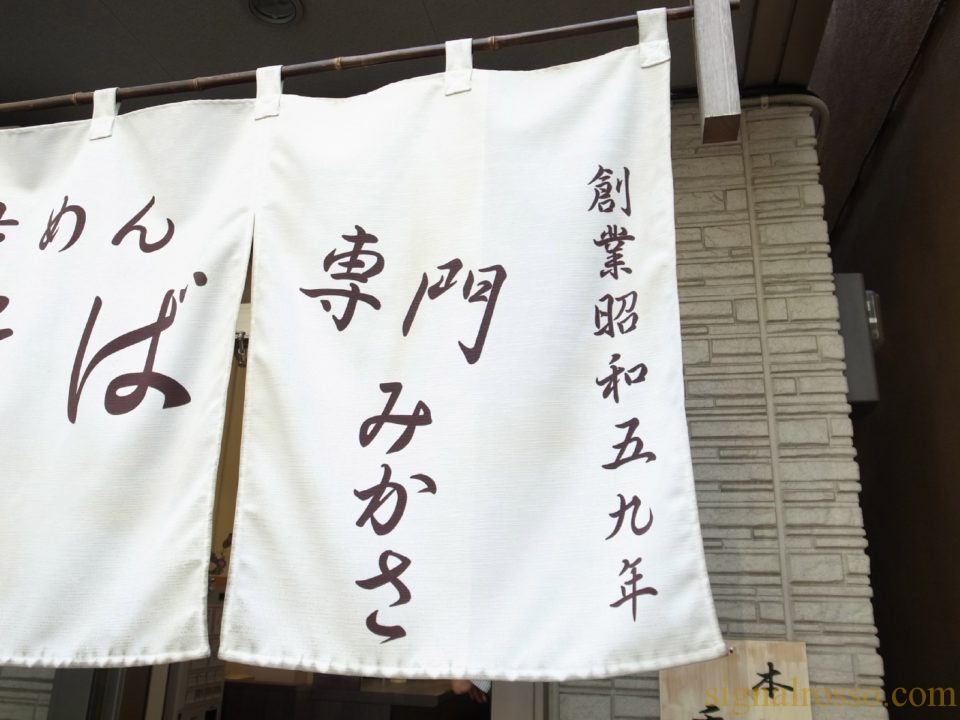 創業昭和五九年
専門
みかさ
めん
ば
本
signalrosso.com